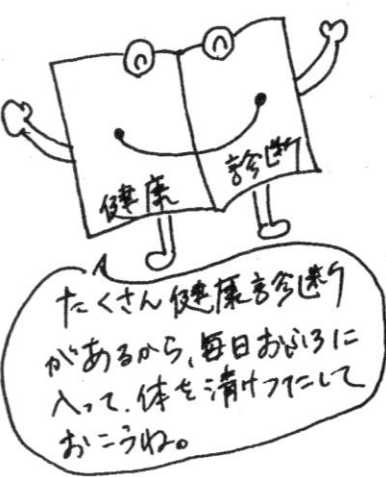 健康
診断
たくさん健康診断
があるから、毎日おふろに
入って、体を清けつにして
おこうね。